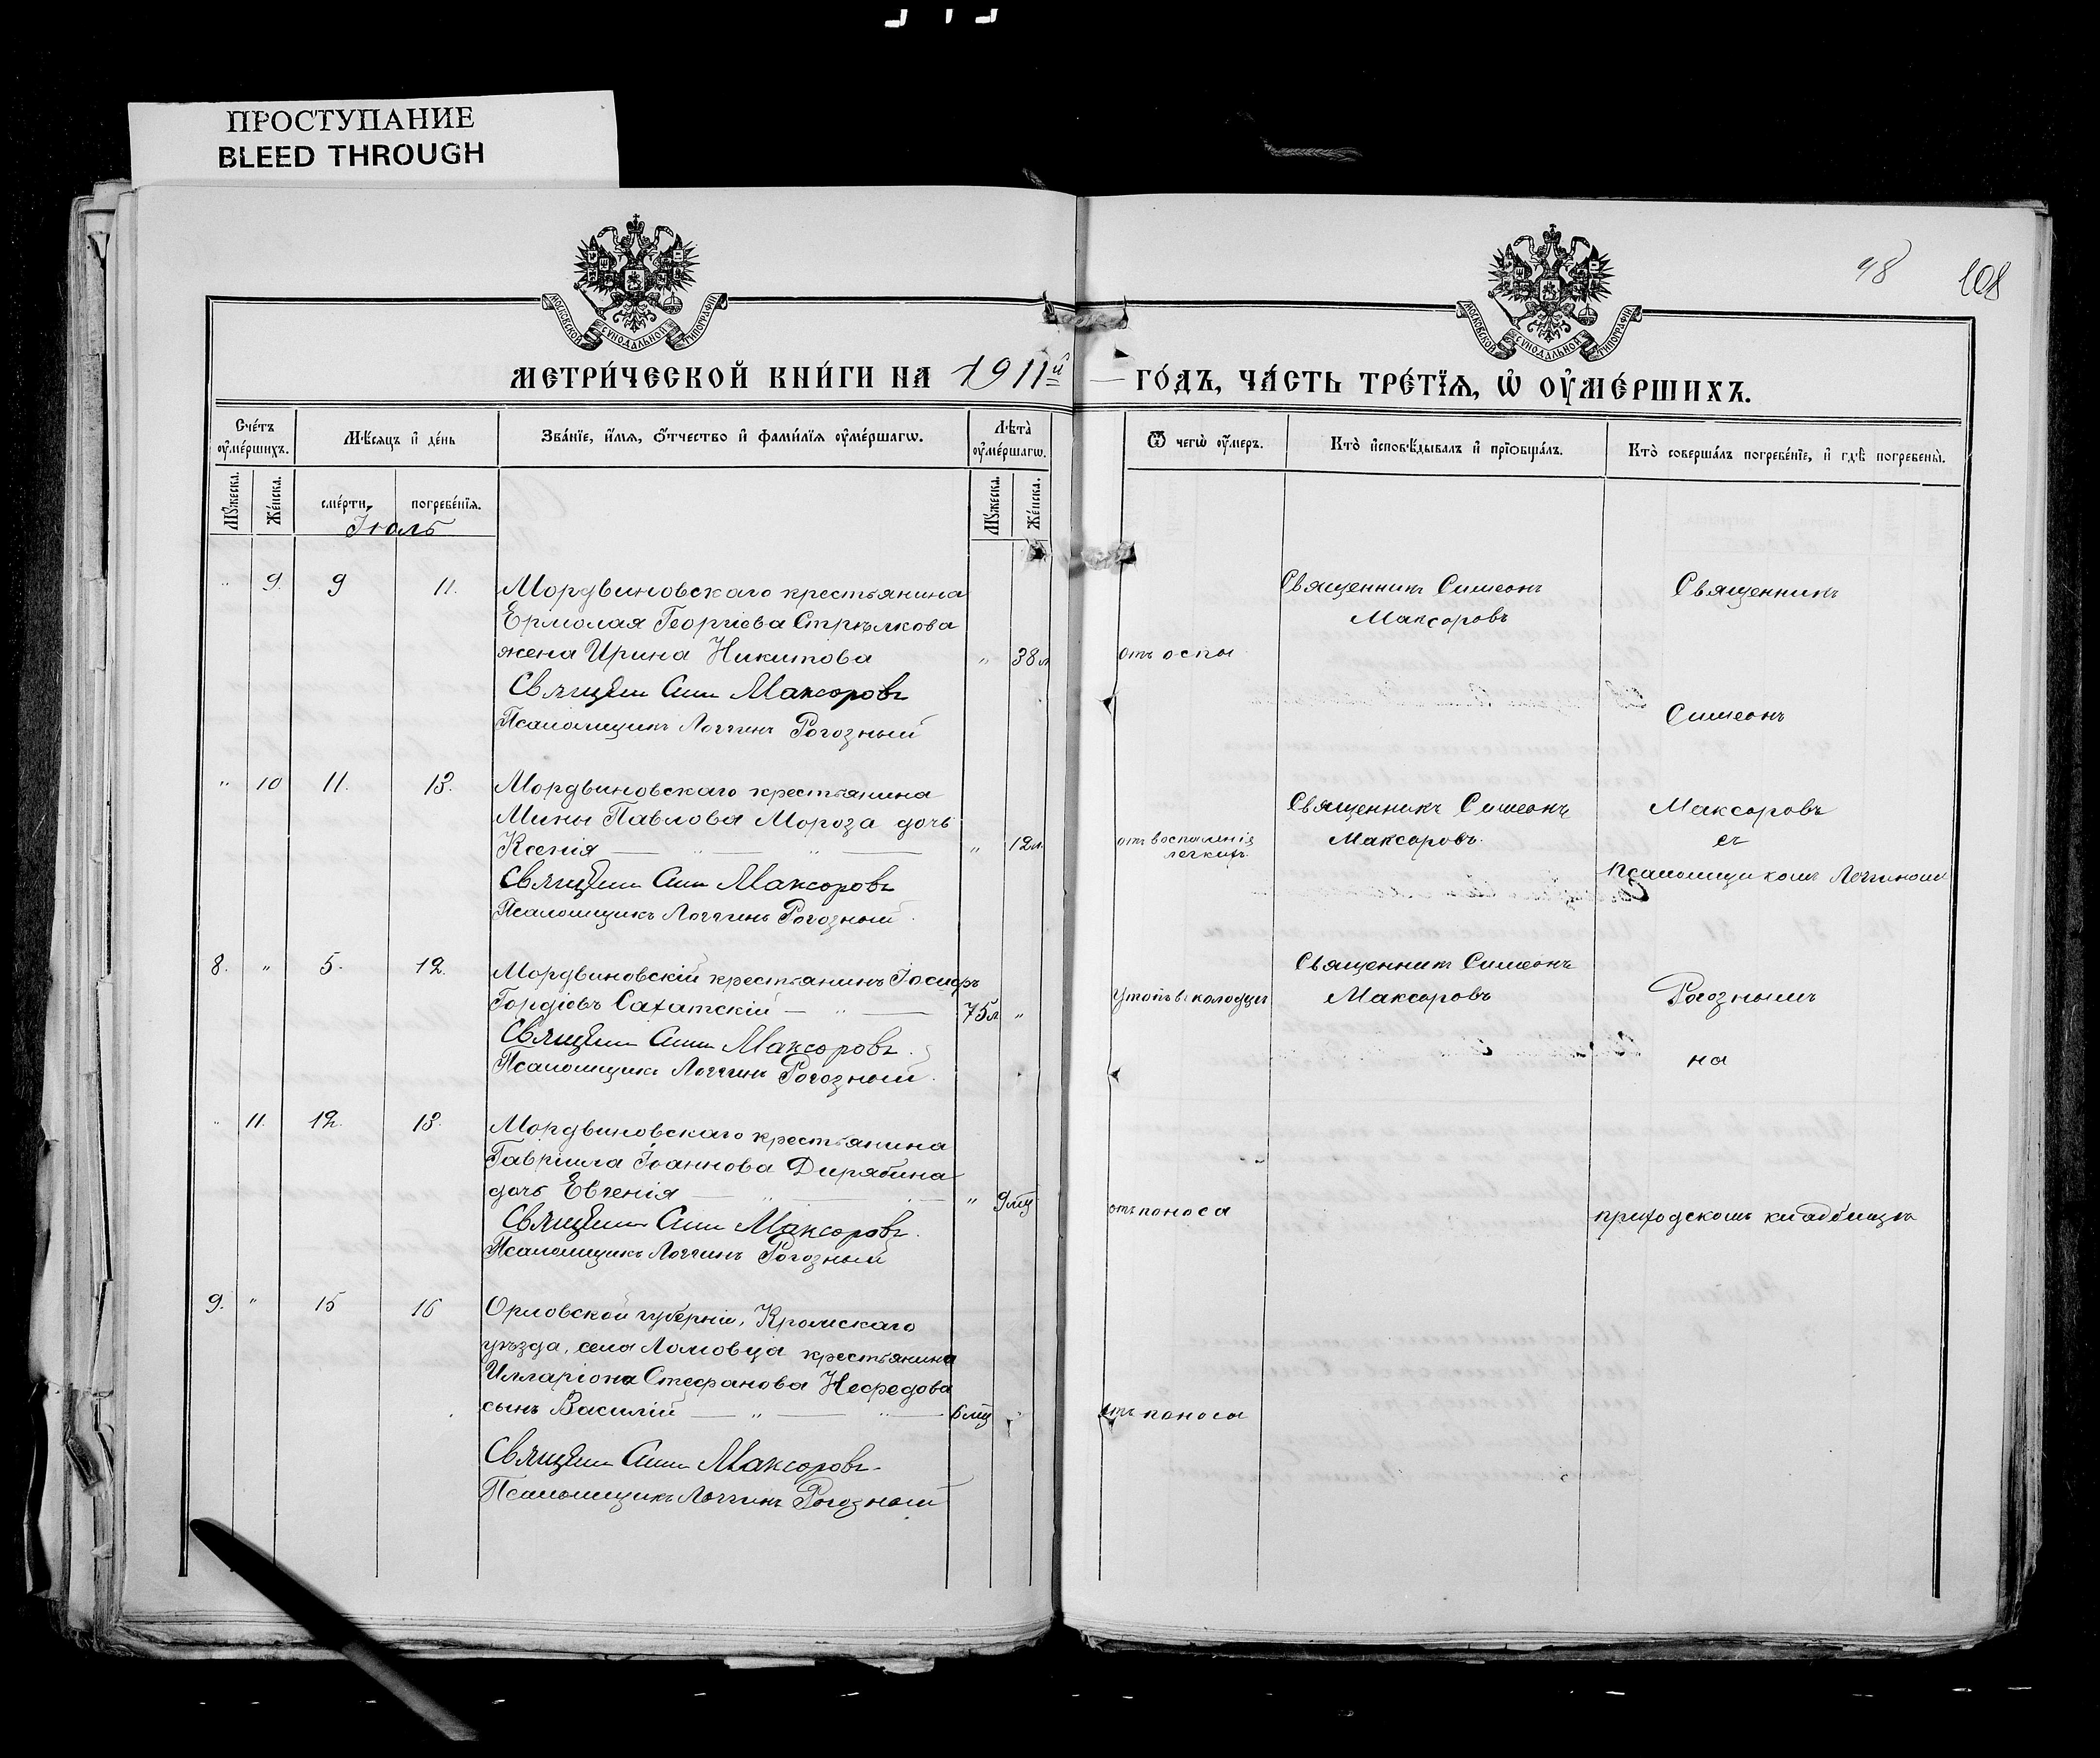 ПРОСТУПАНИЕ
BLEED THROUGH
МОСКОВСКОЙ СѴНОДАЛЬНОЙ ТИПОГРАФІИ
МОСКОВСКОЙ СѴНОДАЛЬНОЙ ТИПОГРАФІИ
48 108
МЕТРИ́ЧЕСКОЙ КНИ́ГИ НА 1911й ГО́ДЪ, ЧА́СТЬ ТРЕ́ТЇѦ, Ѡ҆ ОУ҆МЕ́РШИХЪ.
Сче́тъ оу҆ме́ршихъ.
Мѣ́сяцъ и҆ де́нь
Зва́нїе, и҆́мѧ, ѻ҆́тчество и҆ фами́лїѧ оу҆ме́ршагѡ.
Лѣ́та оу҆ме́ршагѡ.
Ѿ чегѡ̀ оу҆́меръ.
Кто̀ и҆сповѣ́дывалъ и҆ прїѻбща́лъ.
Кто̀ соверша́лъ погребе́нїе, и҆ гдѣ̀ погребены̀.
Мꙋ́жеска.
Же́нска.
сме́рти,
погребе́нїѧ.
Мꙋ́жеска.
Же́нска.
Іюль
" 9. 9 11. Мордвиновскаго крестьянина
Ермолая Георгіева Стрѣлкова
жена Ирина Никитова " 38 л
Священ Сим Максоровъ
Псаломщикъ Логгинъ Рогозный
отъ оспы
Священникъ Симеонъ
Максоровъ
Священникъ
Симеонъ
" 10 11. 13. Мордвиновскаго крестьянина
Мины Павлова Мороза дочь
Ксенія — " — " — " 12 л.
Священ Сим Максоровъ
Псаломщикъ Логгинъ Рогозный.
отъ воспаленія
легкихъ.
Священникъ Симеонъ
Максоровъ.
Максоровъ
съ
псаломщикомъ Логгиномъ
8. " 5. 12. Мордвиновскій крестьянинъ Іосифъ
Гордіевъ Сахатскій — " — 75 л "
Священ Сим Максоровъ.
Псаломщикъ Логгинъ Рогозный.
утопъ въ колодцѣ
Священникъ Симеонъ
Максоровъ
Рогознымъ
на
" 11. 12. 13. Мордвиновскаго крестьянина
Гавріила Іоаннова Дирябина
дочь Евгенія — " — " — " 9 мц
Священ Сим Максоровъ.
Псаломщикъ Логгинъ Рогозный
отъ поноса
приходскомъ кладбищѣ
9. " 15 16 Орловской губерніи, Кромскаго
уѣзда, села Ломовца крестьянина
Илларіона Стефанова Нефедова
сынъ Василій — " — " — 6 мц "
Священ Сим Максоровъ.
Псаломщикъ Логгинъ Рогозный
отъ поноса